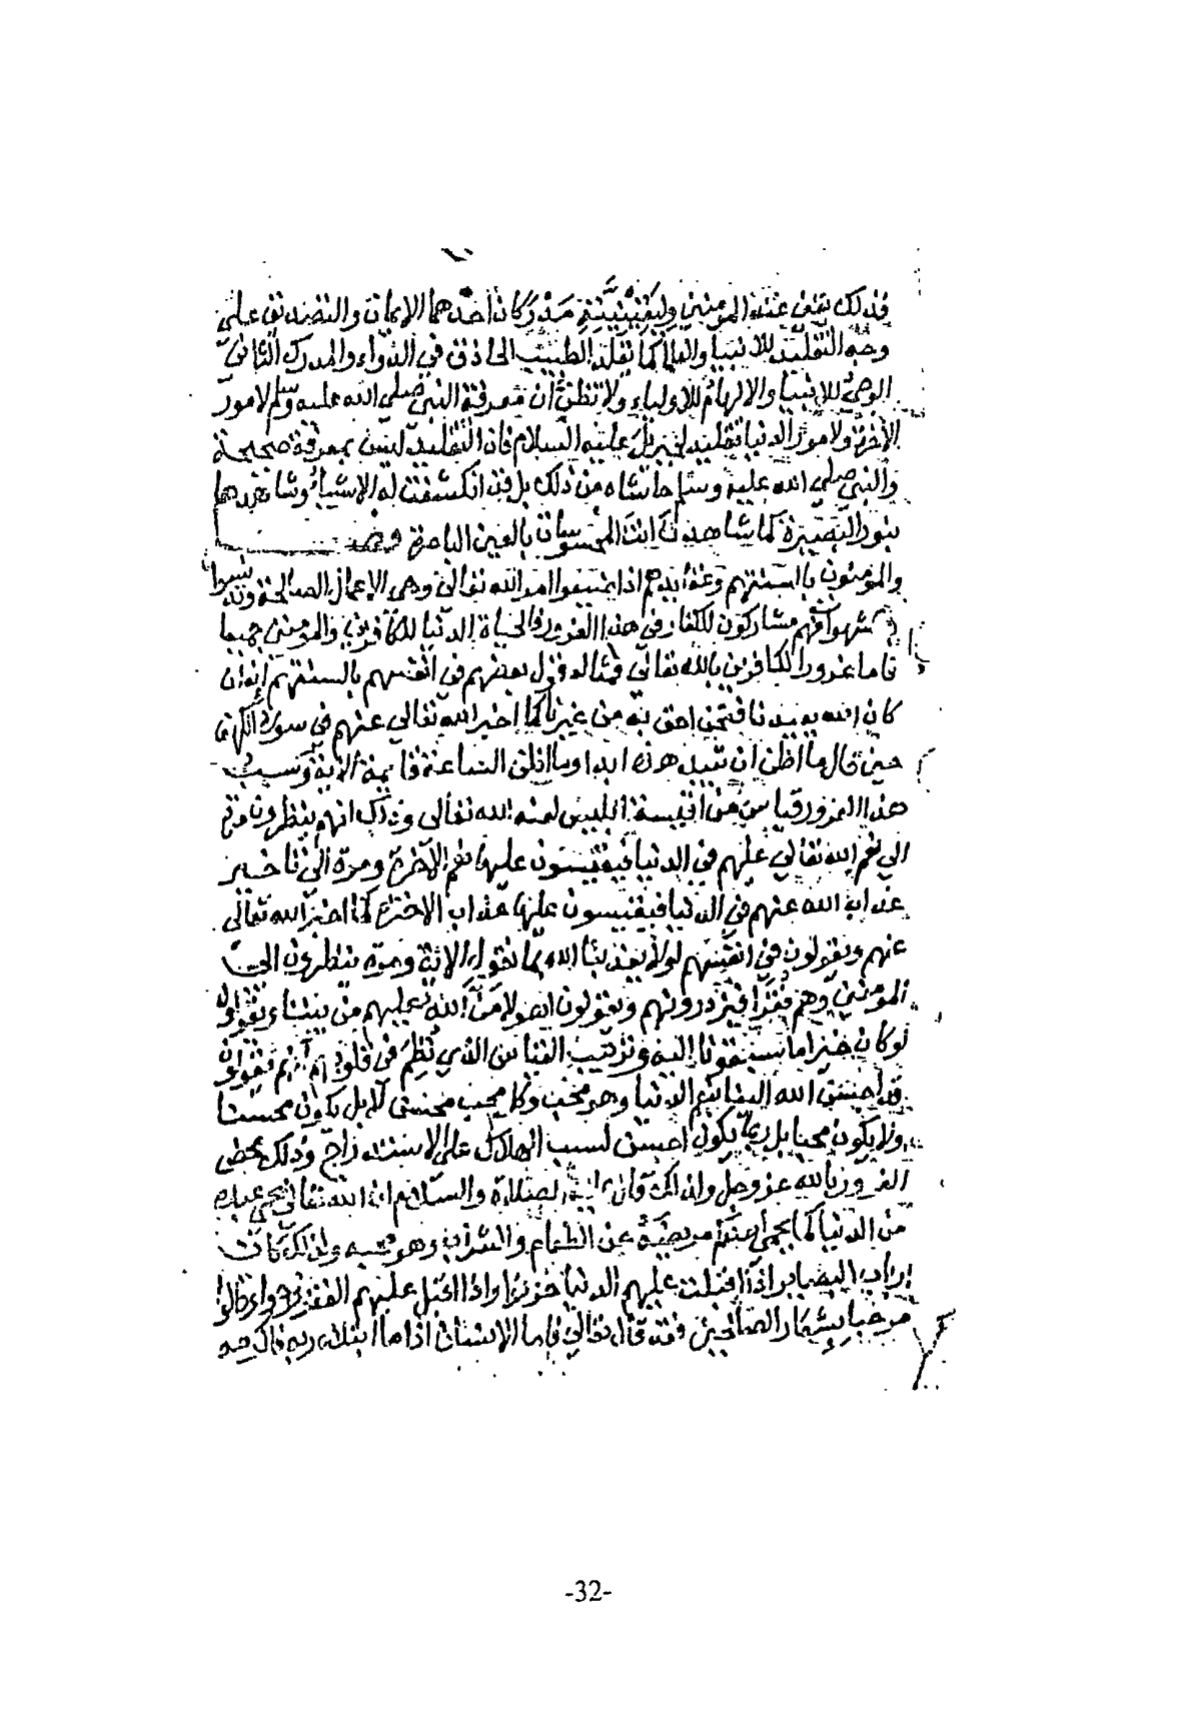 فذلك يقين عند المؤمنين وليقينية مدركان احدهما الإيمان والتصديق على
وجه التقليد للانبيا والعلما كما تقلد الطبيب الحاذق في الدواء والمدرك الثاني
الوحي للانبيا والالهام للاولياء ولا تظن أن معرفة النبي صلى الله عليه وسلم لامور
الآخرة ولامور الدنيا تقليد لجبريل عليه السلام فان التقليد ليس بمعرفة صحيحة
والنبي صلى الله عليه وسلم حاشاه من ذلك بل قد انكشفت له الاشياء وشاهدها
بنور البصيرة كما شاهدت انت المحسوسات بالعين الباصرة فصل
والمؤمنون بالسنتهم وعقايدهم اذا ضيعوا امر الله تعالى وهي الاعمال الصالحة وتلبسوا
شهوات فهم مشاركون للكفار في هذا الغرور فالحياة الدنيا للكافرين والمؤمنين جميعا
فاما غرور الكافرين بالله تعالى فمثاله قول بعضهم في انفسهم بالسنتهم انه ان
كان الله يعيدنا فنحن احق به من غيرنا كما اخبر الله تعالى عنهم في سورة الكهف
حين قال ما اظن ان تبيد هذه ابدا وما اظن الساعة قايمة الآية وسبب
هذا الغرور قياس من اقيسة ابليس لعنه الله تعالى وذلك انهم ينظرون مرة
الى نعم الله تعالى عليهم في الدنيا فيقيسون عليها نعم الآخرة ومرة الى تاخير
عذاب الله عنهم في الدنيا فيقيسون عليها عذاب الاخرة كما اخبر الله تعالى
عنهم ويقولون في انفسهم لولا يعذبنا الله بما نقول الاية ومرة ينظرون الى
المؤمنين وهم فقرا فيزدرونهم ويقولون اهولا من الله عليهم من بيننا ويقولون
لو كان خيرا ما سبقونا اليه وترتيب القياس الذي نظم في قلوبهم انهم يقولون
قد احسن الله الينا بنعم الدنيا وهو محب وكل محب محسن لا بل يكون محسنا
ولا يكون محبا بل ربما يكون احسن لسبب الهلاك على الاستدراج وذلك محض
الغرور بالله عز وجل ولذلك قال عليه الصلاة والسلام ان الله تعالى يحمي عبده
من الدنيا كما يحمي احدكم مريضه عن الطعام والشراب وهو يحبه ولذلك كانت
ارباب البصاير اذا اقبلت عليهم الدنيا حزنوا واذا اقبل عليهم الفقر فرحوا وقالوا
مرحبا بشعار الصالحين فقد قال تعالى فاما الانسان اذا ما ابتلاه ربه فاكرمه
-32-